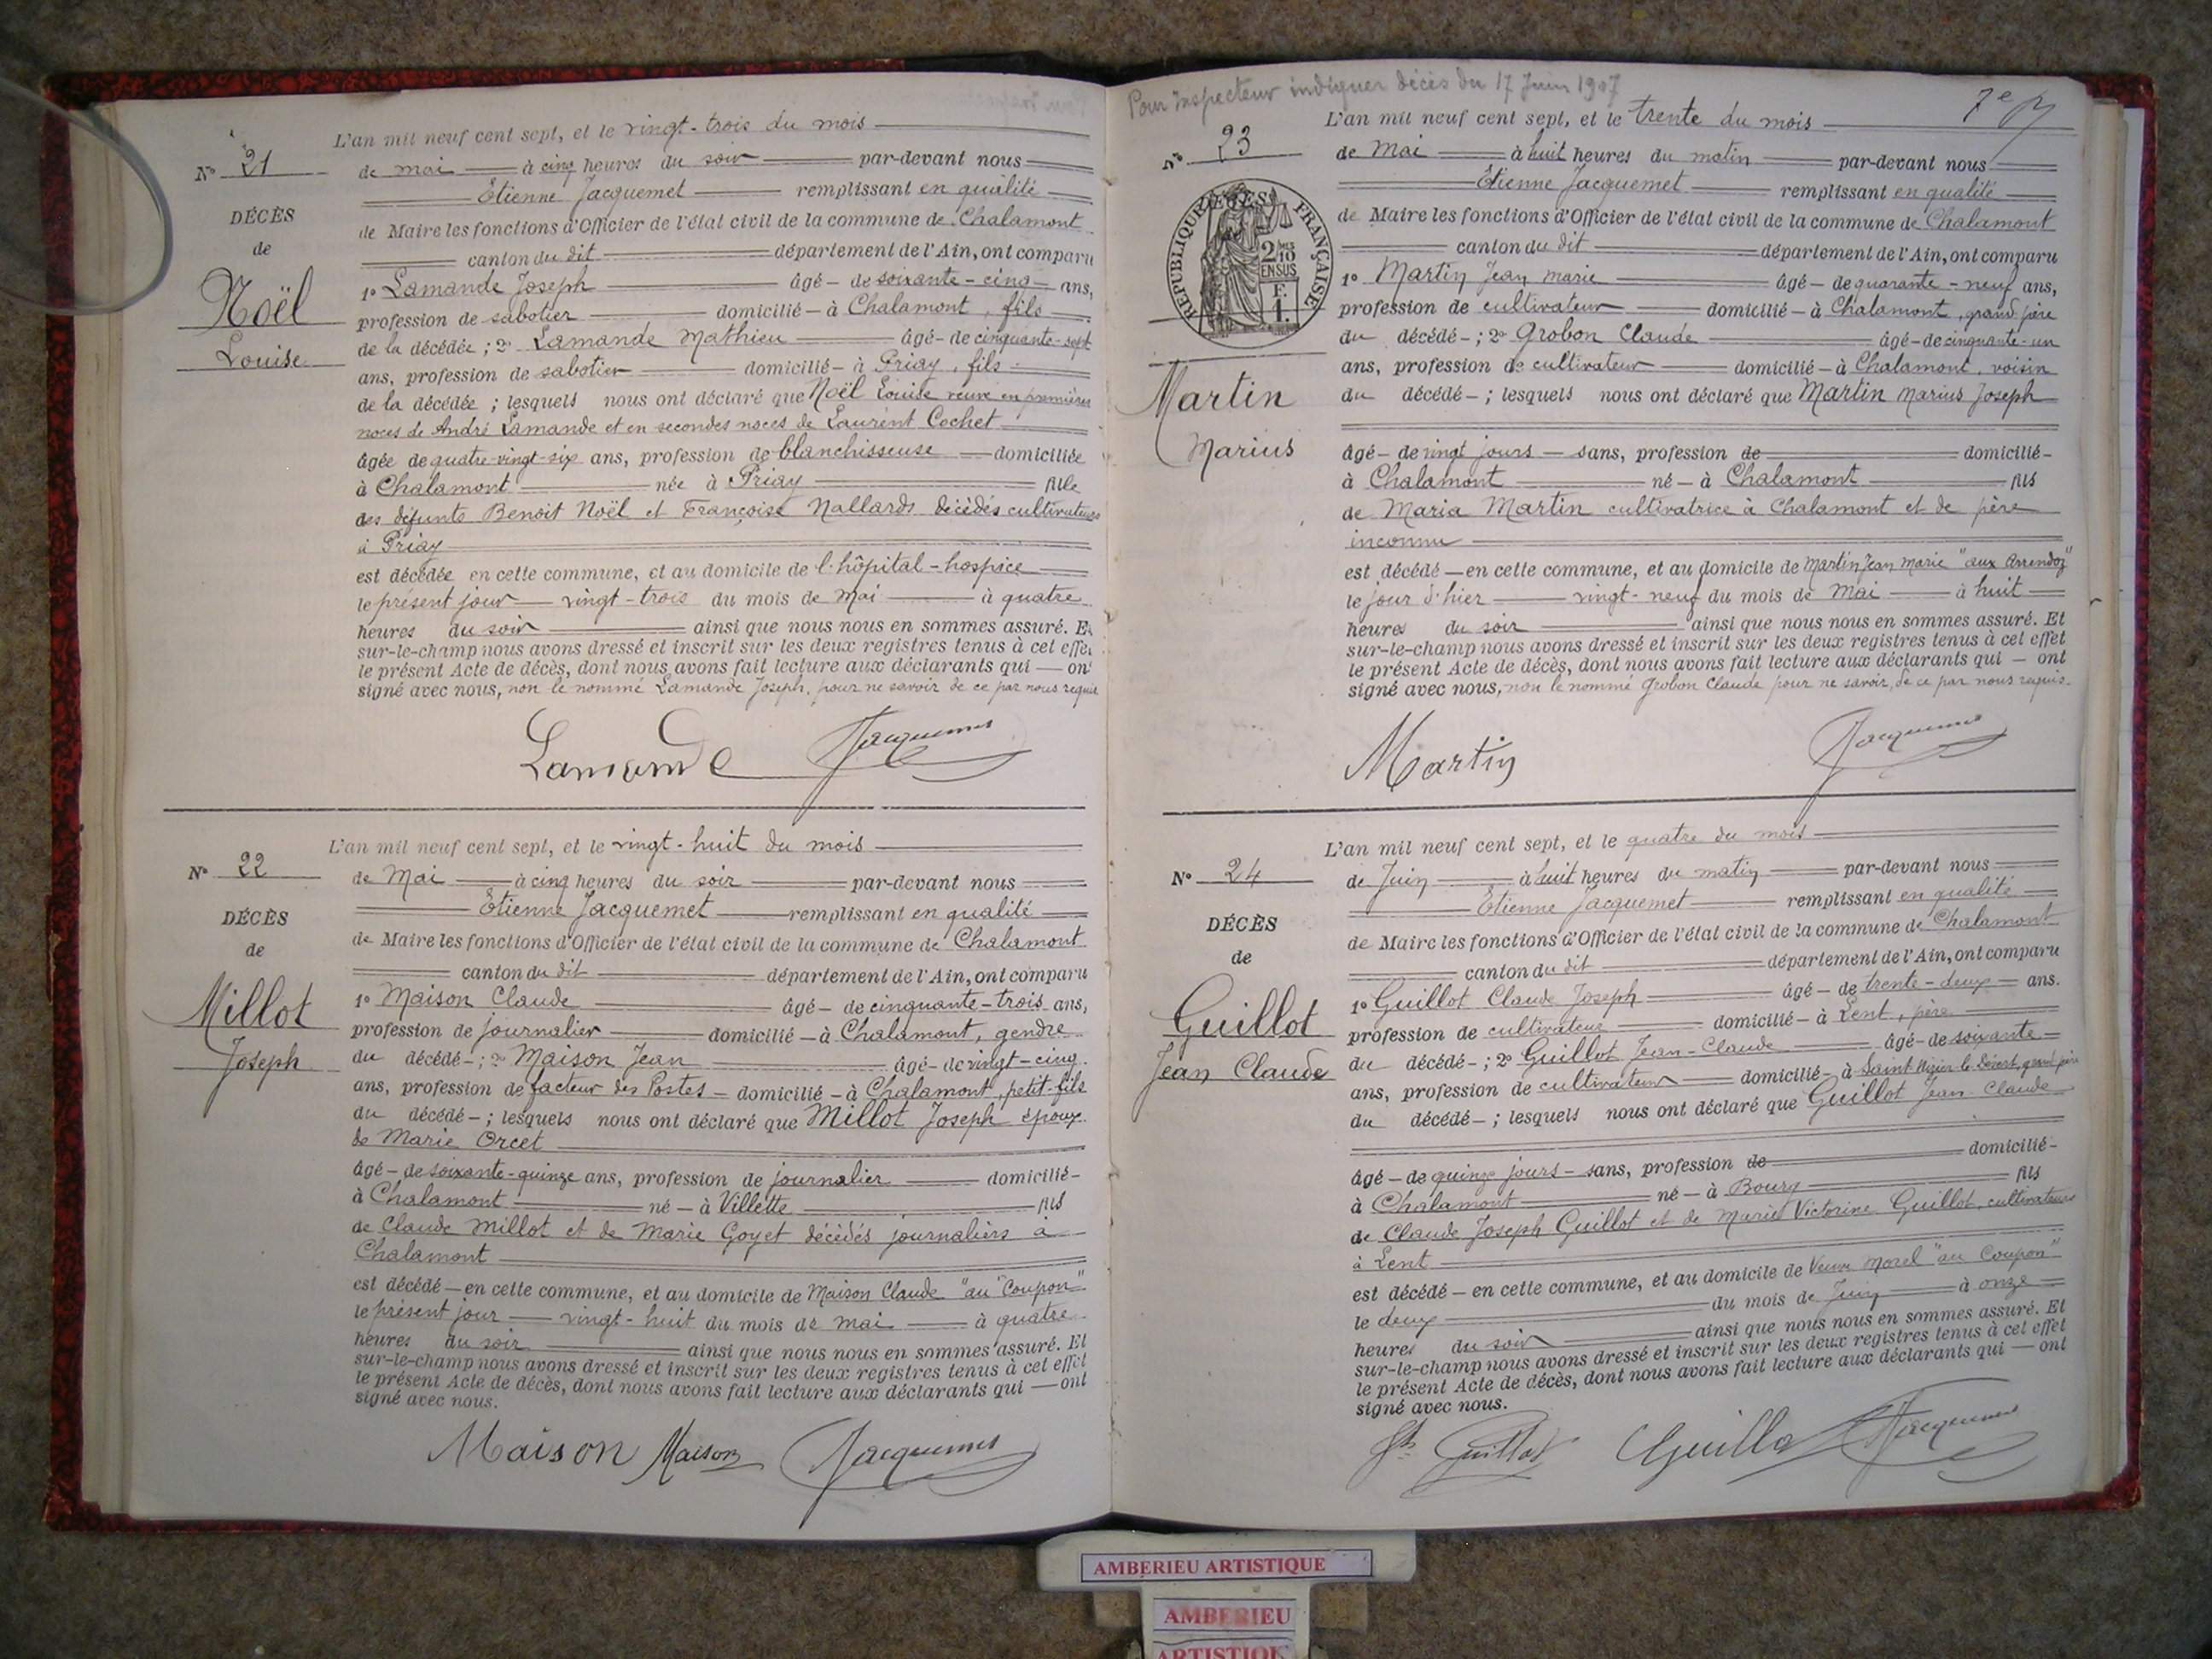 L'an mil neuf cent sept, et le vingt-trois du mois
N° 21
de mai à cinq heures du soir par-devant nous
Etienne Jacquemet remplissant en qualité
DÉCÈS
de Maire les fonctions d'Officier de l'état civil de la commune de Chalamont
de
canton du dit département de l'Ain, ont comparu
Noël
1° Lamande Joseph âgé - de soixante-cinq ans,
profession de sabotier domicilié - à Chalamont, fils
Louise
de la décédée ; 2° Lamande Mathieu âgé - de cinquante-sept
ans, profession de sabotier domicilié - à Priay, fils
de la décédée ; lesquels nous ont déclaré que Noël Louise veuve en premières
noces de André Lamande et en secondes noces de Laurent Cochet
âgée de quatre-vingt-six ans, profession de blanchisseuse domiciliée
à Chalamont née à Priay fille
des défunts Benoit Noël et Françoise Nallards décédés cultivateurs
à Priay
est décédée en cette commune, et au domicile de l'hôpital-hospice
le présent jour vingt-trois du mois de Mai à quatre
heures du soir ainsi que nous nous en sommes assuré. Et
sur-le-champ nous avons dressé et inscrit sur les deux registres tenus à cet effet
le présent Acte de décès, dont nous avons fait lecture aux déclarants qui — ont
signé avec nous, non le nommé Lamande Joseph, pour ne savoir de ce par nous requis
Lamande Jacquemet
L'an mil neuf cent sept, et le vingt-huit du mois
N° 22
de Mai à cinq heures du soir par-devant nous
Etienne Jacquemet remplissant en qualité
DÉCÈS
de Maire les fonctions d'Officier de l'état civil de la commune de Chalamont
de
canton du dit département de l'Ain, ont comparu
Millot
1° Maison Claude âgé - de cinquante-trois ans,
profession de journalier domicilié - à Chalamont, gendre
Joseph
du décédé - ; 2° Maison Jean âgé - de vingt-cinq
ans, profession de facteur des Postes - domicilié - à Chalamont, petit-fils
du décédé - ; lesquels nous ont déclaré que Millot Joseph époux
de Marie Orcet
âgé - de soixante-quinze ans, profession de journalier domicilié -
à Chalamont né - à Villette fils
de Claude Millot et de Marie Goyet décédés journaliers à
Chalamont
est décédé - en cette commune, et au domicile de Maison Claude "au Coupon"
le présent jour vingt-huit du mois de mai à quatre
heures du soir ainsi que nous nous en sommes assuré. Et
sur-le-champ nous avons dressé et inscrit sur les deux registres tenus à cet effet
le présent Acte de décès, dont nous avons fait lecture aux déclarants qui — ont
signé avec nous.
Maison Maison Jacquemet
Pour Inspecteur indiquer décès du 17 Juin 1907
7e
L'an mil neuf cent sept, et le trente du mois
N° 23
de Mai à huit heures du matin par-devant nous
Etienne Jacquemet remplissant en qualité
RÉPUBLIQUE FRANÇAISE
2/10 EN SUS
de Maire les fonctions d'Officier de l'état civil de la commune de Chalamont
canton du dit département de l'Ain, ont comparu
1° Martin Jean Marie âgé - de quarante-neuf ans,
profession de cultivateur domicilié - à Chalamont, grand père
du décédé - ; 2° Grobon Claude âgé - de cinquante-un
ans, profession de cultivateur domicilié - à Chalamont, voisin
Martin
du décédé - ; lesquels nous ont déclaré que Martin Marius Joseph
Marius
âgé - de vingt jours - sans, profession de domicilié -
à Chalamont né - à Chalamont fils
de Maria Martin cultivatrice à Chalamont et de père
inconnu
est décédé - en cette commune, et au domicile de Martin Jean Marie "aux Arrendoz"
le jour d'hier vingt-neuf du mois de Mai à huit
heures du soir ainsi que nous nous en sommes assuré. Et
sur-le-champ nous avons dressé et inscrit sur les deux registres tenus à cet effet
le présent Acte de décès, dont nous avons fait lecture aux déclarants qui — ont
signé avec nous, non le nommé Grobon Claude pour ne savoir, de ce par nous requis.
Martin Jacquemet
L'an mil neuf cent sept, et le quatre du mois
N° 24
de Juin à huit heures du matin par-devant nous
Etienne Jacquemet remplissant en qualité
DÉCÈS
de Maire les fonctions d'Officier de l'état civil de la commune de Chalamont
de
canton du dit département de l'Ain, ont comparu
Guillot
1° Guillot Claude Joseph âgé - de trente-deux ans.
profession de cultivateur domicilié - à Lent, père
Jean Claude
du décédé - ; 2° Guillot Jean-Claude âgé - de soixante
ans, profession de cultivateur domicilié - à Saint Nizier le Désert, grand père
du décédé - ; lesquels nous ont déclaré que Guillot Jean Claude
âgé - de quinze jours - sans, profession de domicilié -
à Chalamont né - à Bourg fils
de Claude Joseph Guillot et de Marie Victorine Guillot, cultivateurs
à Lent
est décédé - en cette commune, et au domicile de Veuve Morel "au Coupon"
le deux du mois de Juin à onze
heures du soir ainsi que nous nous en sommes assuré. Et
sur-le-champ nous avons dressé et inscrit sur les deux registres tenus à cet effet
le présent Acte de décès, dont nous avons fait lecture aux déclarants qui — ont
signé avec nous.
Guillot Guillot Jacquemet
AMBERIEU ARTISTIQUE
AMBERIEU
ARTISTIQUE